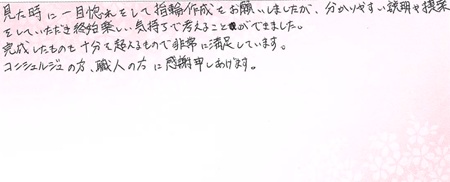 見た時に一目惚れをして指輪作成をお願いしましたが、分かりやすい説明や提案
をしていただき終始楽しい気持ちで考えることができました。
完成したものも十分を超えるもので非常に満足しています。
コンシェルジュの方、職人の方に感謝申しあげます。